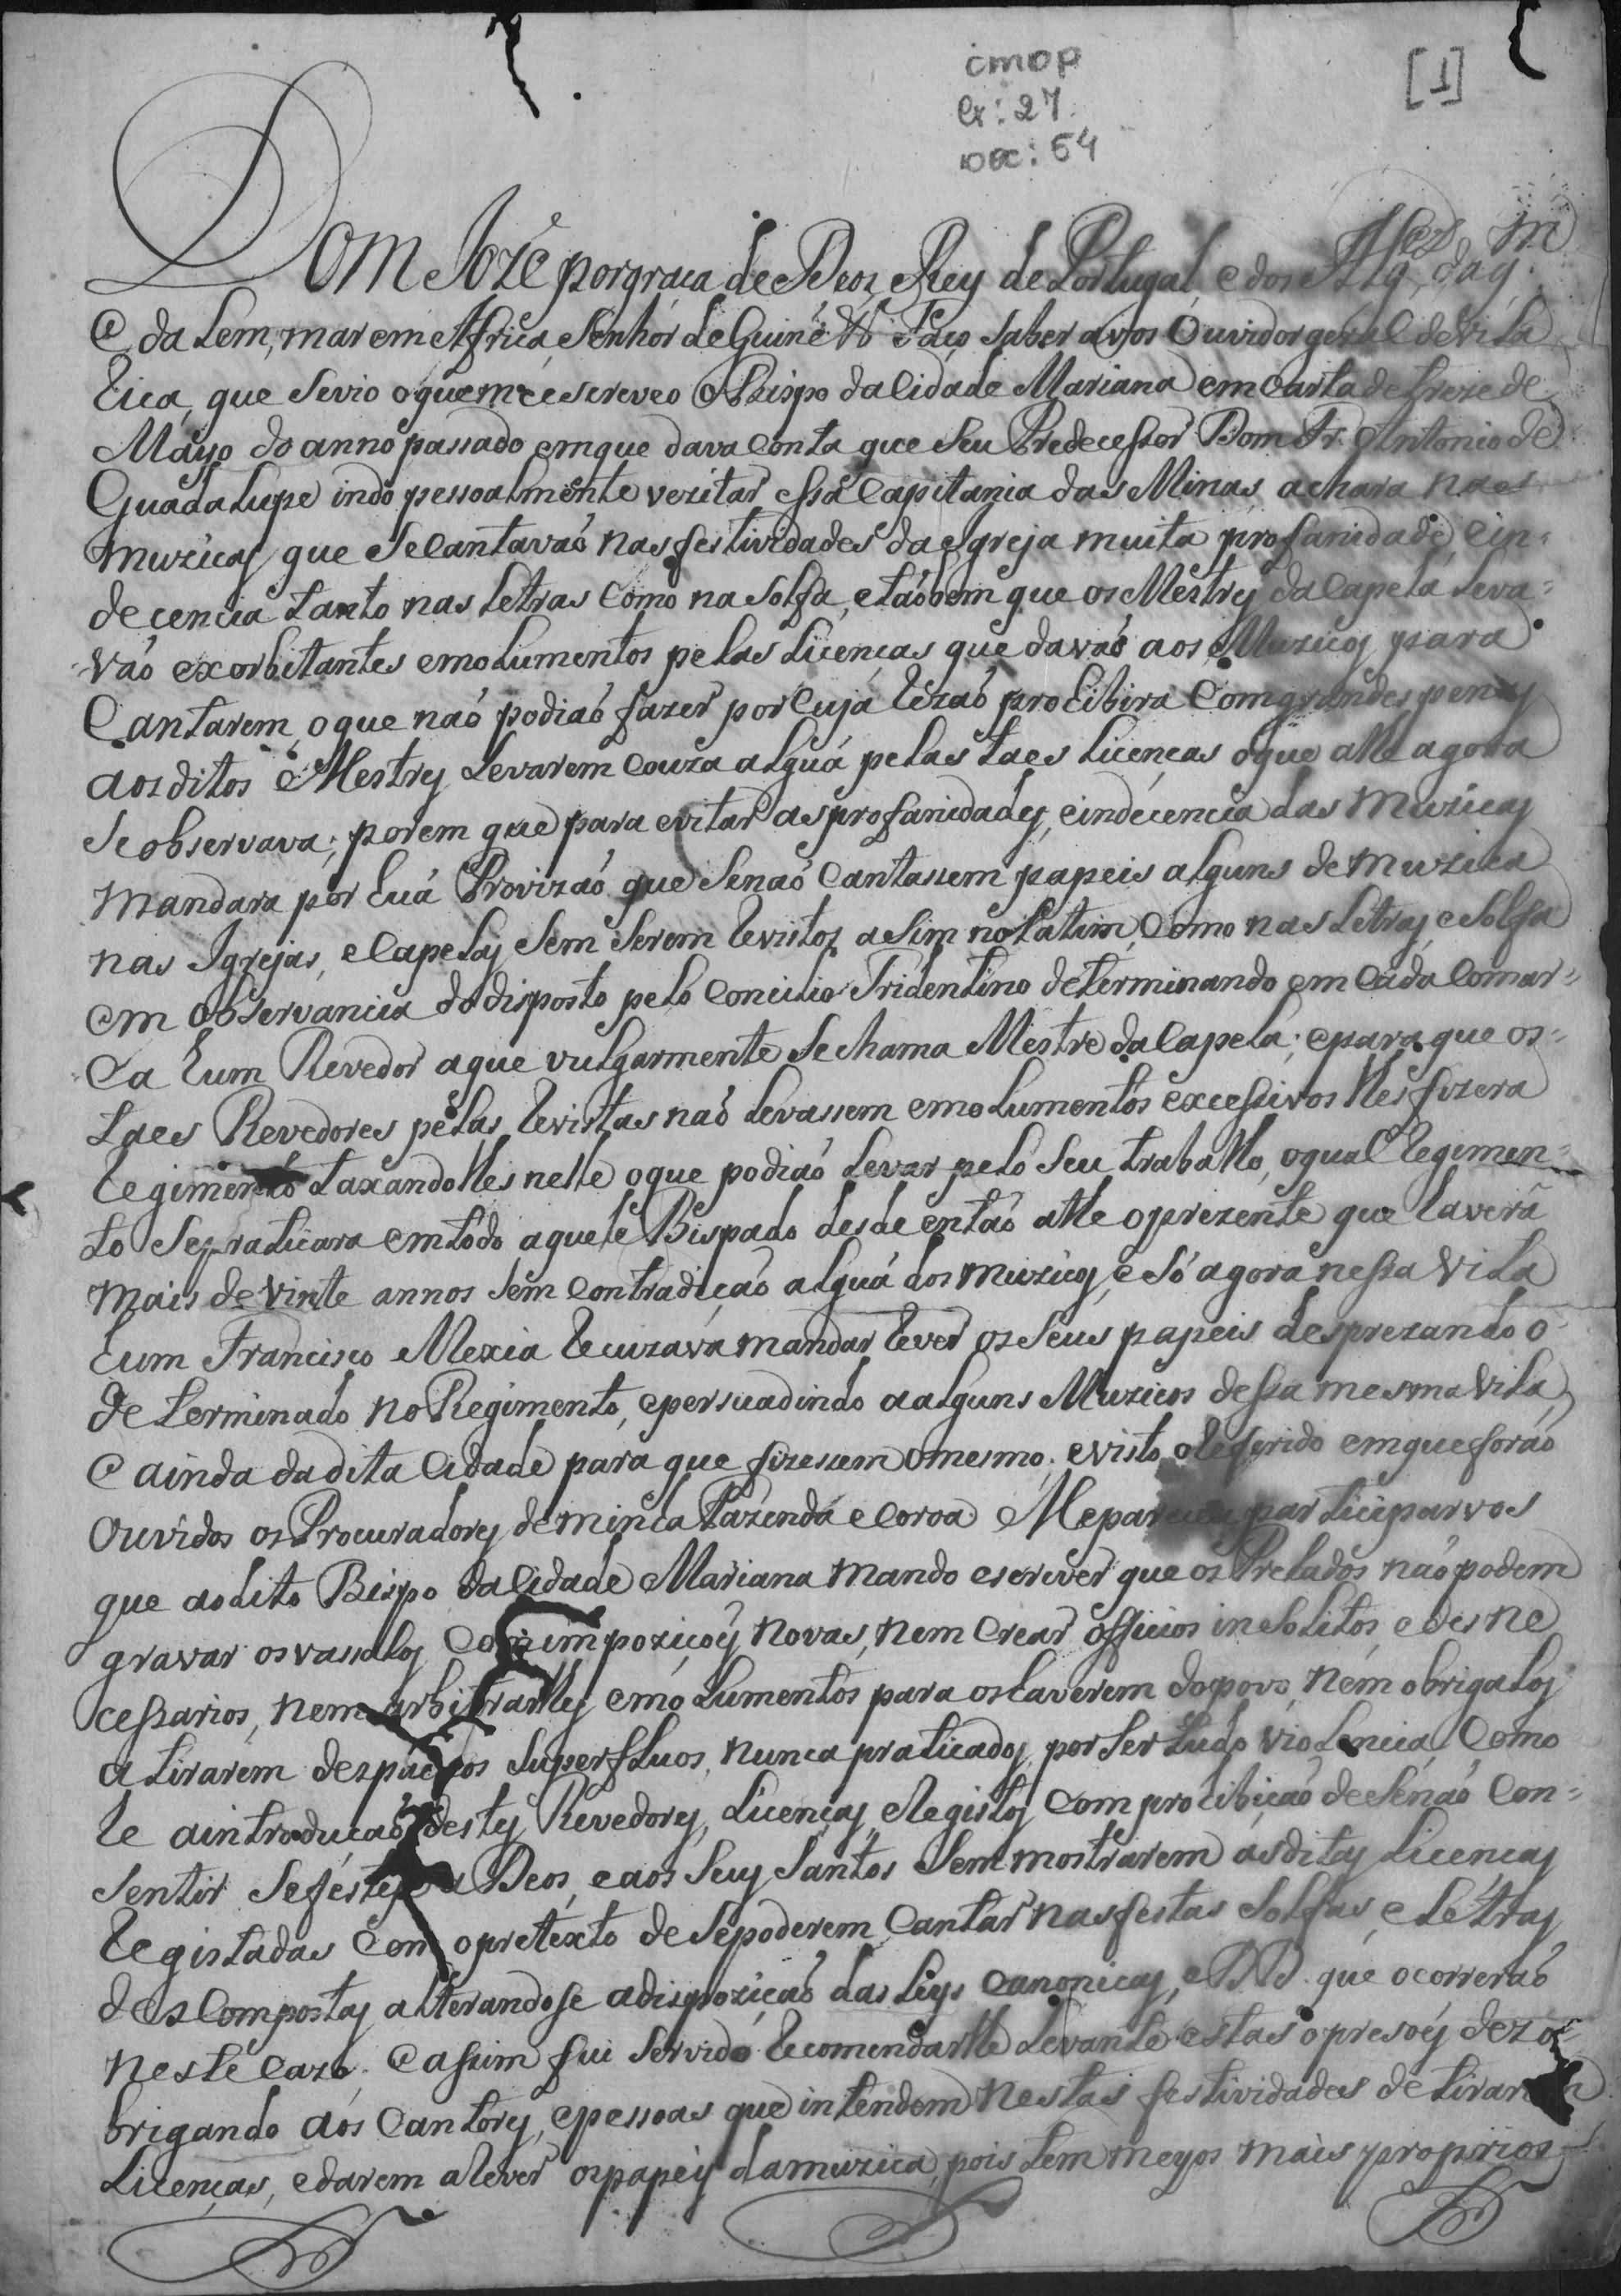 cmop
Cx: 27
DOC: 54
[1]
Dom Jozé por graca de Deos, Rey de Portugal, e dos Alg.es daq.m
e da lem, mar em Africa, Senhor de Guiné &c. Faço saber avos Ouvidor geral de Vila
Rica, que se vio o que me escreveo o Bispo da Cidade Mariana em carta de treze de
Mayo do anno passado em que dava conta que seu Predecessor Dom Fr. Antonio de
Guadalupe indo pessoalmente vezitar essa Capitania das Minas achara nas
muzicas que se cantavaõ nas festividades da Igreja muita profanidade, e in-
decencia tanto nas letras como na solfa, e taõbem que os Mestres da Capela leva-
vaõ exorbitantes emolumentos pelas licenças que davaõ aos Muzicos para
Cantarem, o que naõ podiaõ fazer por cuja rezaõ prohibira com grandes penas
aos ditos Mestres levarem couza algũa pelas taes licenças o que athe agora
se observava; porem que para evitar as profanidades, e indecencia das muzicas
mandara por hũa Provizaõ que se naõ Cantassem papeis alguns de muzica
nas Igrejas, e Capelas sem serem revistos asim no latim, como nas letras, e solfa
em observancia do disposto pelo Concilio Tridentino determinando em cada comar-
ca hum Revedor a que vulgarmente se chama Mestre da Capela; e para que os
taes Revedores pelas revistas naõ levassem emolumentos excessivos lhes fizera
regimento taxandolhes nelle o que podiaõ levar pelo seu trabalho, o qual regimen-
to se praticara em todo aquele Bispado desde entaõ athe o prezente que haverá
mais de vinte annos sem contradiçaõ algũa dos muzicos, e só agora nessa Vila
hum Francisco Mexia recuzava mandar rever os seus papeis desprezando o
determinado no Regimento, e persuadindo a alguns Muzicos dessa mesma Vila,
e ainda da dita Cidade para que fizessem o mesmo; e visto o referido em que foraõ
ouvidos os Procuradores de minha Fazenda e Coroa. Me pareceu participarvos
que ao dito Bispo da Cidade Mariana mando escrever que os Prelados naõ podem
gravar os vassalos com impoziçoes novas, nem crear officios insolitos, e desne
cessarios, nem arbitrarlhes emolumentos para os haverem do povo, nem obrigalos
a tirarem despachos superfluos, nunca praticados, por ser tudo violencia, como
he a introduçaõ destes Revedores, Licenças, e Registos com prohibiçaõ de se naõ con-
sentir se festeje a Deos, e aos seus Santos sem mostrarem as ditas Licenças
registadas com o pretexto de se poderem cantar nas festas solfas, e létras
descompostas alterandose a dispoziçaõ das Leys canonicas, e DD. que ocorreraõ
neste cazo. e assim fui servido recomendarlhe levante estas opresoẽs dezo-
brigando aos Cantores, e pessoas que intendem nestas festividades de tirarem
licenças, e darem a rever os papeis da muzica, pois tem meyos mais proprios